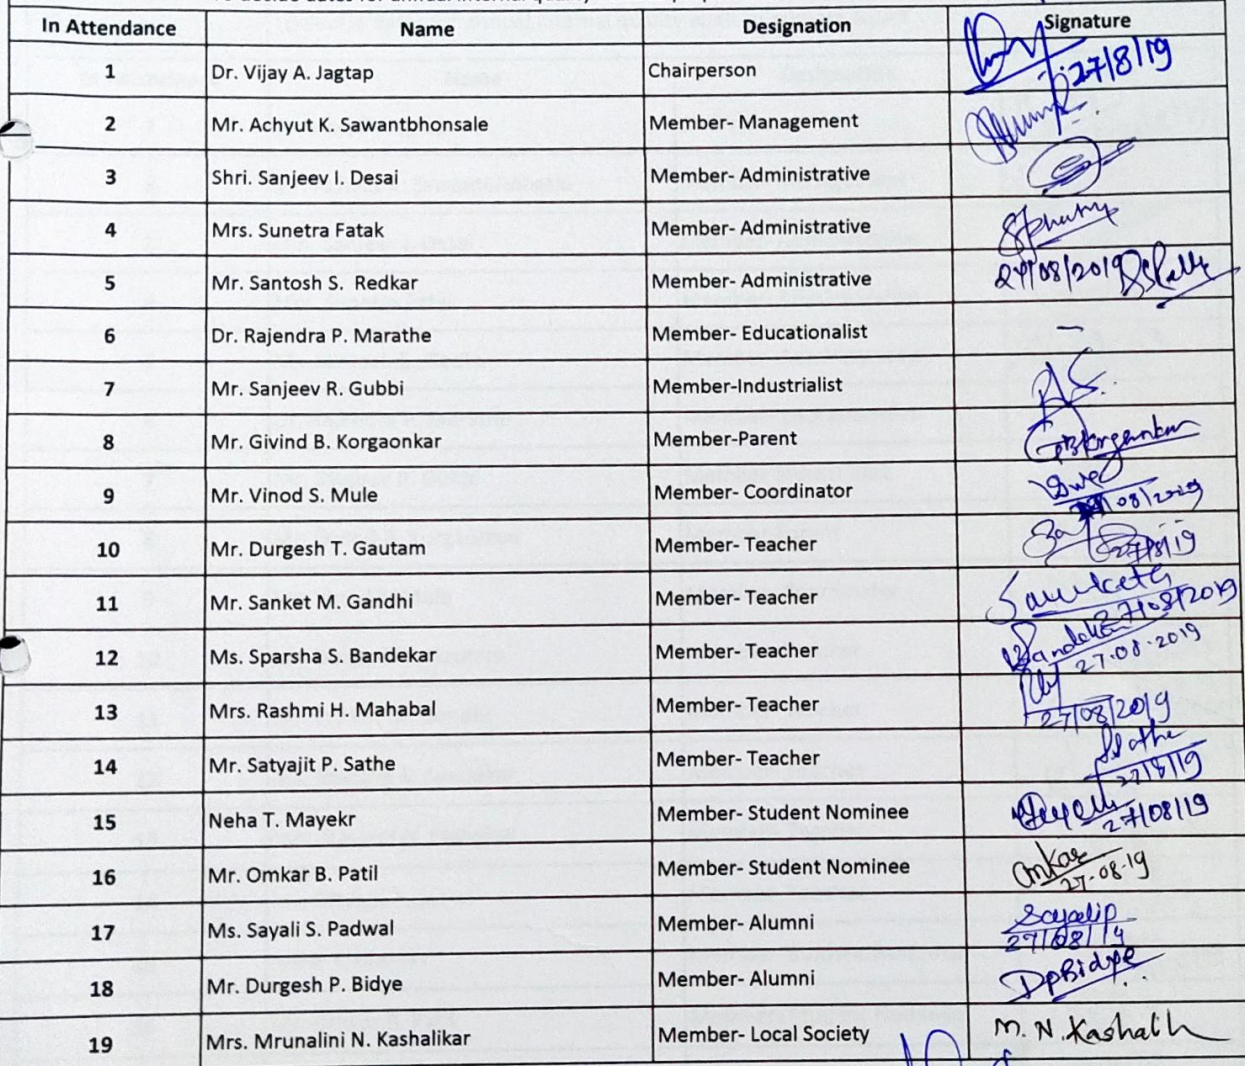 In Attendance Name Designation Signature
1 Dr. Vijay A. Jagtap Chairperson 27/8/19
2 Mr. Achyut K. Sawantbhonsale Member- Management
3 Shri. Sanjeev I. Desai Member- Administrative
4 Mrs. Sunetra Fatak Member- Administrative
5 Mr. Santosh S. Redkar Member- Administrative 27/08/2019
6 Dr. Rajendra P. Marathe Member- Educationalist –
7 Mr. Sanjeev R. Gubbi Member-Industrialist
8 Mr. Givind B. Korgaonkar Member-Parent GBKorgaonkar
9 Mr. Vinod S. Mule Member- Coordinator
10 Mr. Durgesh T. Gautam Member- Teacher 27/8/19
11 Mr. Sanket M. Gandhi Member- Teacher 27/08/2019
12 Ms. Sparsha S. Bandekar Member- Teacher Bandekar 27.08.2019
13 Mrs. Rashmi H. Mahabal Member- Teacher 27/08/2019
14 Mr. Satyajit P. Sathe Member- Teacher Sathe 27/8/19
15 Neha T. Mayekr Member- Student Nominee 27/08/19
16 Mr. Omkar B. Patil Member- Student Nominee Omkar 27-08-19
17 Ms. Sayali S. Padwal Member- Alumni Sayalip 27/08/19
18 Mr. Durgesh P. Bidye Member- Alumni DPBidye
19 Mrs. Mrunalini N. Kashalikar Member- Local Society M. N. Kashalik